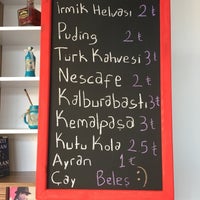 İrmik Helvası 2 ₺
Puding 2 ₺
Türk Kahvesi 3 ₺
Nescafe 2 ₺
Kalburabastı 3 ₺
Kemalpaşa 3 ₺
Kutu Kola 2.5 ₺
Ayran 1 ₺
Çay Beleş :)